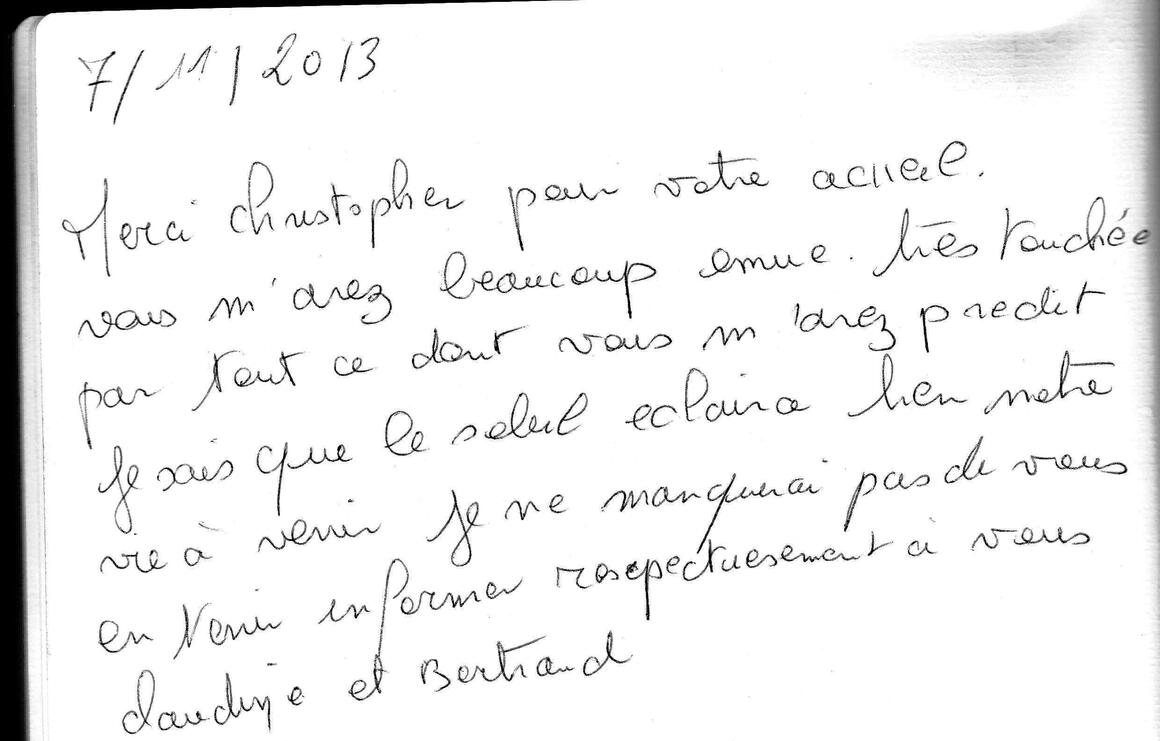 7/11/2013
Merci Christopher pour votre acueil.
vous m'avez beaucoup emue. très touchée
par tout ce dont vous m'avez predit
Je sais que le soleil eclaira bien notre
vie à venir Je ne manquerai pas de vous
en tenir informer resepectuesement à vous
et Bertrand